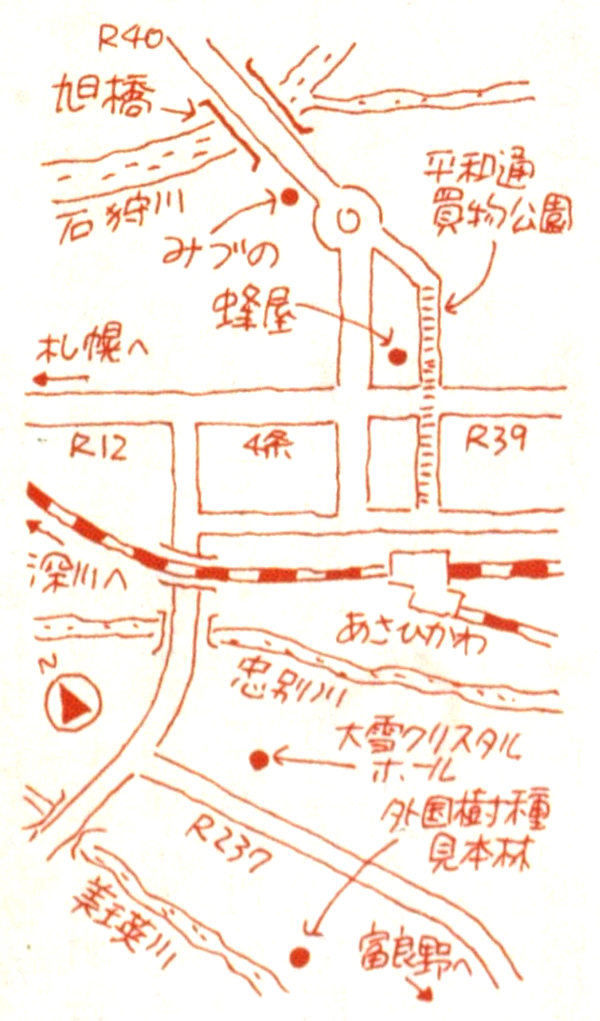 R40
旭橋
石狩川
平和通
買物公園
みづの
蜂屋
札幌へ
R12
4条
R39
深川へ
あさひかわ
N
忠別川
大雪クリスタル
ホール
外国樹種
見本林
R237
美瑛川
富良野へ